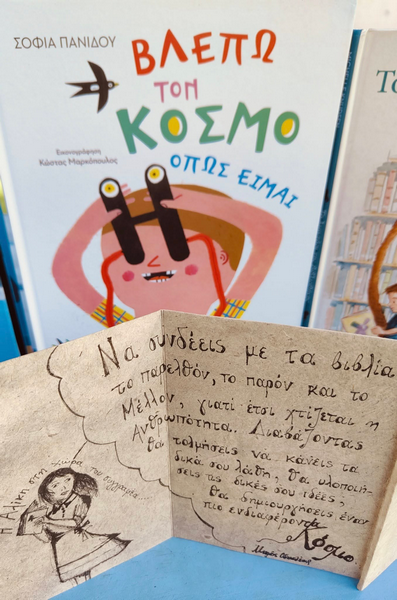 ΣΟΦΙΑ ΠΑΝΙΔΟΥ
ΒΛΕΠΩ
ΤΟΝ
ΚΟΣΜΟ
ΟΠΩΣ ΕΙΜΑΙ
Εικονογράφηση
Κώστας Μαρκόπουλος
Το
Να συνδέεις με τα βιβλία
το παρελθόν, το παρόν και το
Μέλλον, γιατί έτσι χτίζεται η
Ανθρωπότητα. Διαβάζοντας
θα τολμήσεις να κάνεις τα
δικά σου λάθη, θα υλοποιή-
σεις τις δικές σου ιδέες,
θα δημιουργήσεις έναν
πιο ενδιαφέροντα
Κόσμο.
Η Αλίκη στη χώρα του